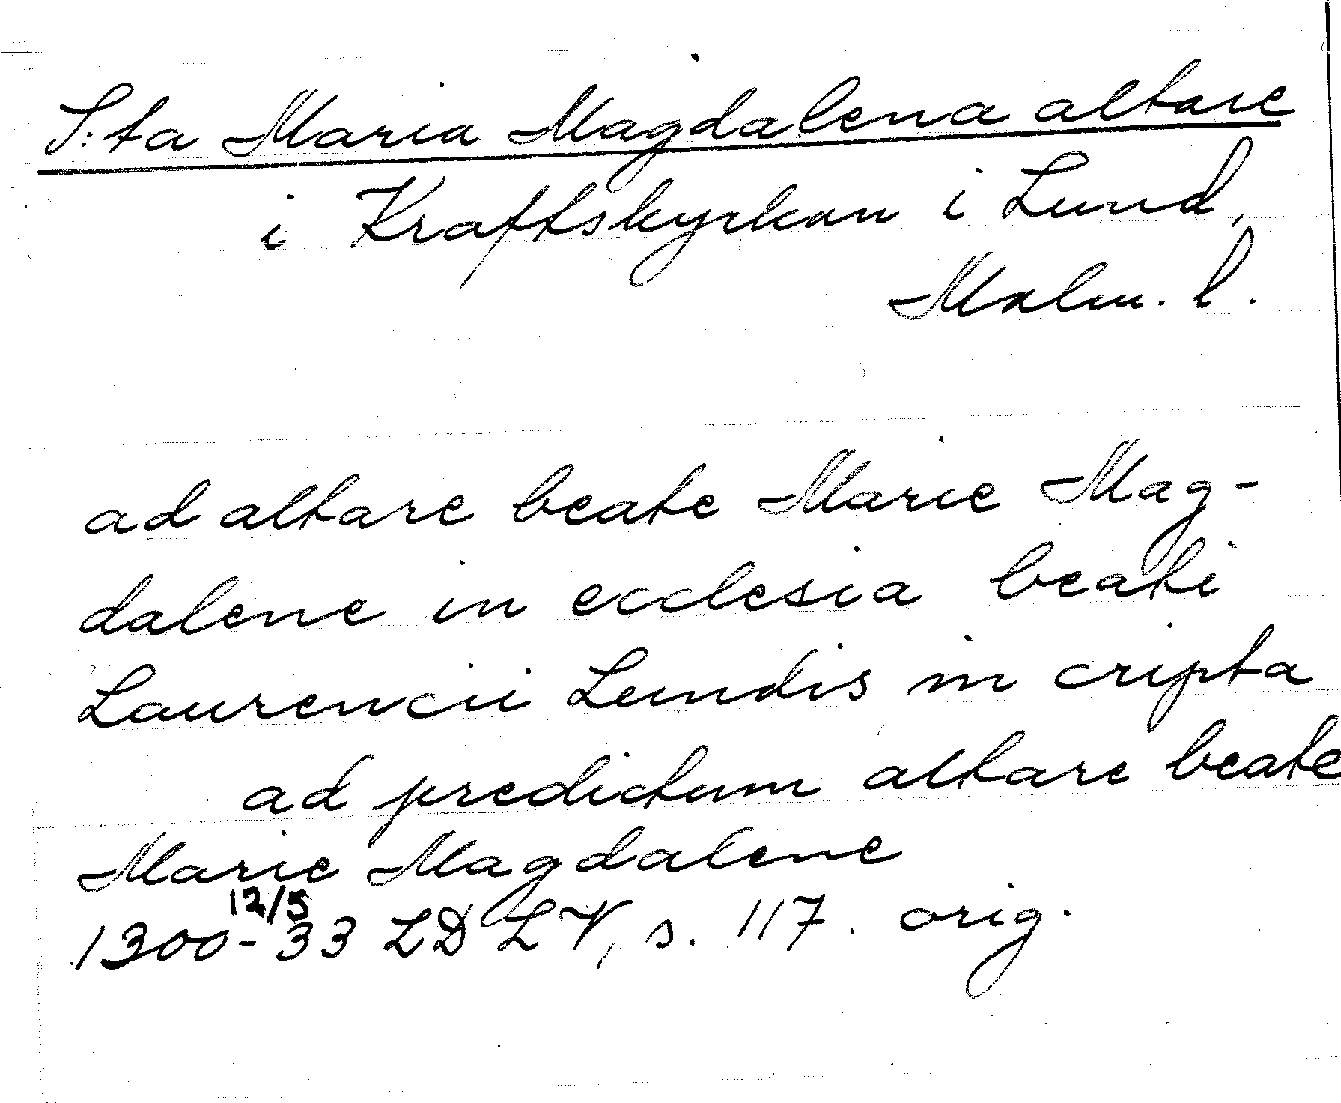 S:ta Maria Magdalena altare
i Kraftskyrkan i Lund,
Malm. l.
ad altare beate Marie Mag-
dalene in ecclesia beati
Laurencii Lundis in cripta
ad predictum altare beate
Marie Magdalene
12/5
1300-33 LD LV, s. 117. orig.